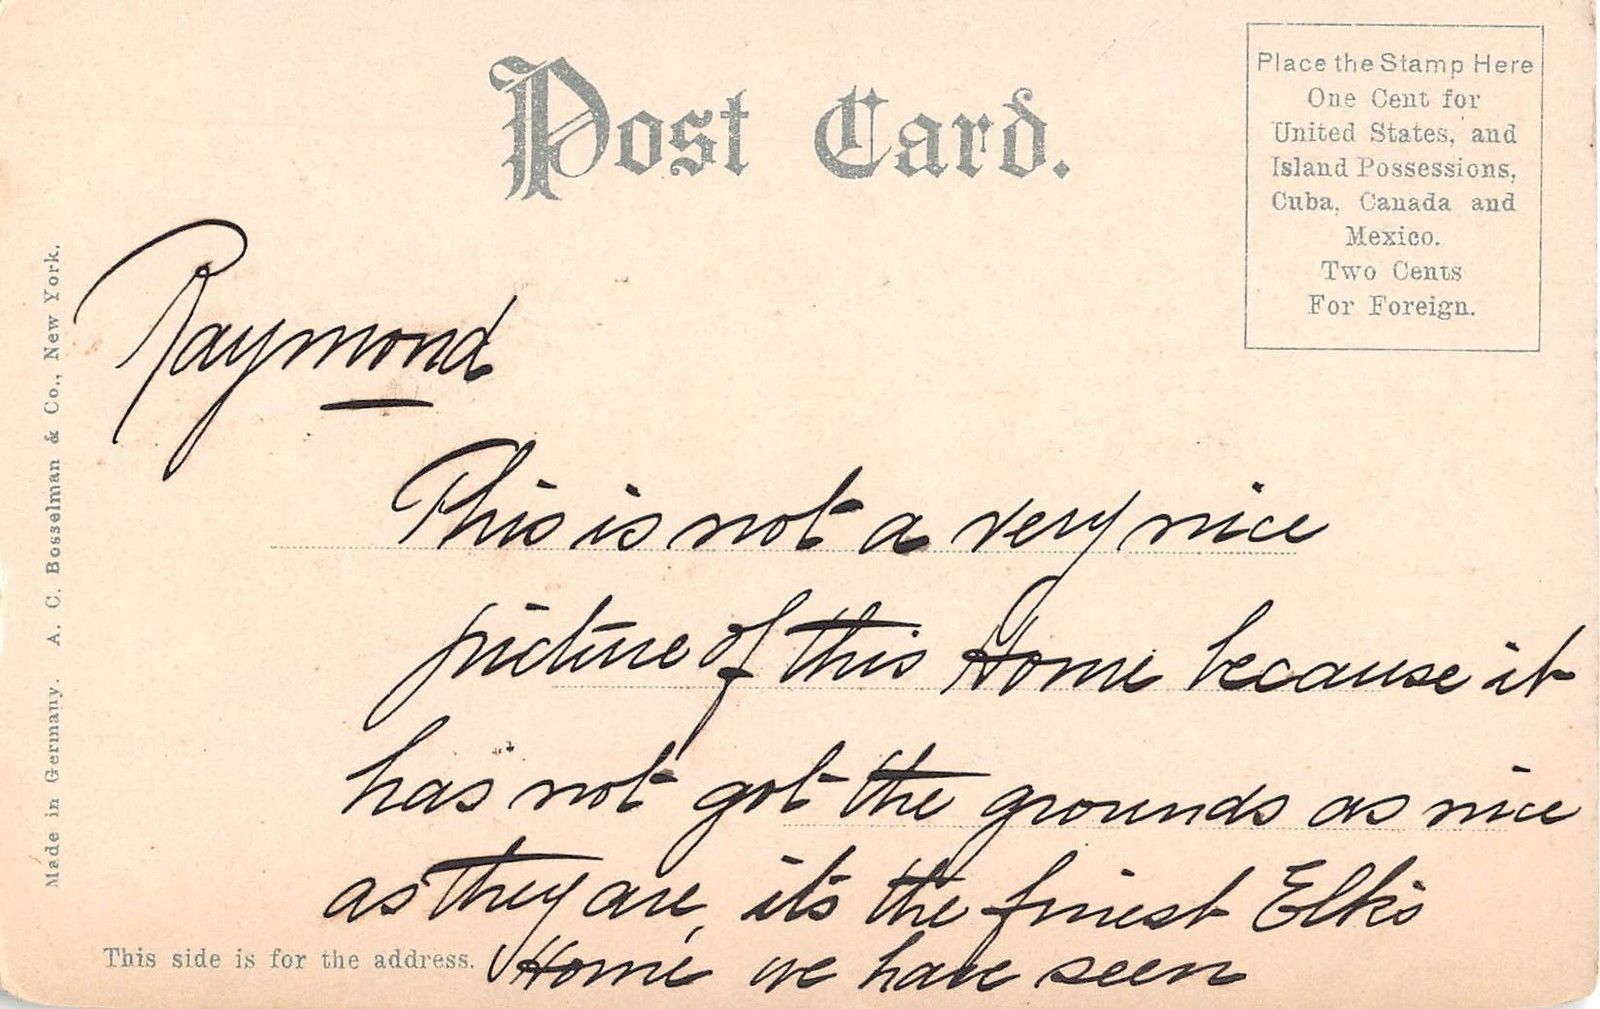 Post Card.
Place the Stamp Here
One Cent for
United States, and
Island Possessions,
Cuba, Canada and
Mexico.
Two Cents
For Foreign.
Made in Germany. A. C. Bosselman & Co., New York.
Raymond
This is not a very nice
picture of this Home because it
has not got the grounds as nice
as they are, it's the finest Elk's
Home we have seen
This side is for the address.